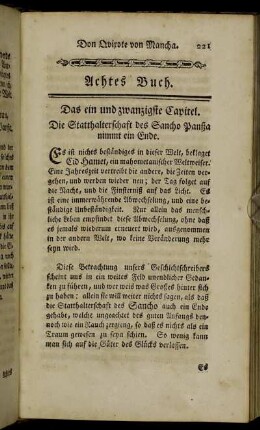 Don Qvixote von Mancha. 221
Achtes Buch.
Das ein und zwanzigste Capitel.
Die Statthalterschaft des Sancho Pansa
nimmt ein Ende.
Es ist nichts beständiges in dieser Welt, besieget
Cid Hamet, ein mahometanischer Weltweiser.
Eine Jahreszeit vertreibt die andere, die Zeiten ver-
gehen, und werden wieder neu; der Tag folget auf
die Nacht, und die Finsterniß auf das Licht. Es
ist eine immerwährende Abwechselung, und eine be-
ständige Unbeständigkeit. Nur allein das mensch-
liche Leben empfindet diese Abwechselung, ohne daß es
jemals wiederum erneuert wird, ausgenommen
in der andern Welt, wo keine Veränderung mehr
seyn wird.
Diese Betrachtung unsers Geschichtschreibers
scheint uns in ein weites Feld moralischer Gedan-
ken zu führen, und wer weis was Großes hinter sich
zu haben: allein sie will weiter nichts sagen, als daß
die Statthalterschaft des Sancho auch ein Ende
gehabt, welche ungeachtet des guten Anfangs den-
noch wie ein Rauch zergieng, so daß es nichts als ein
Traum gewesen zu seyn schien. So wenig kann
man sich auf die Güter des Glücks verlassen.
Es